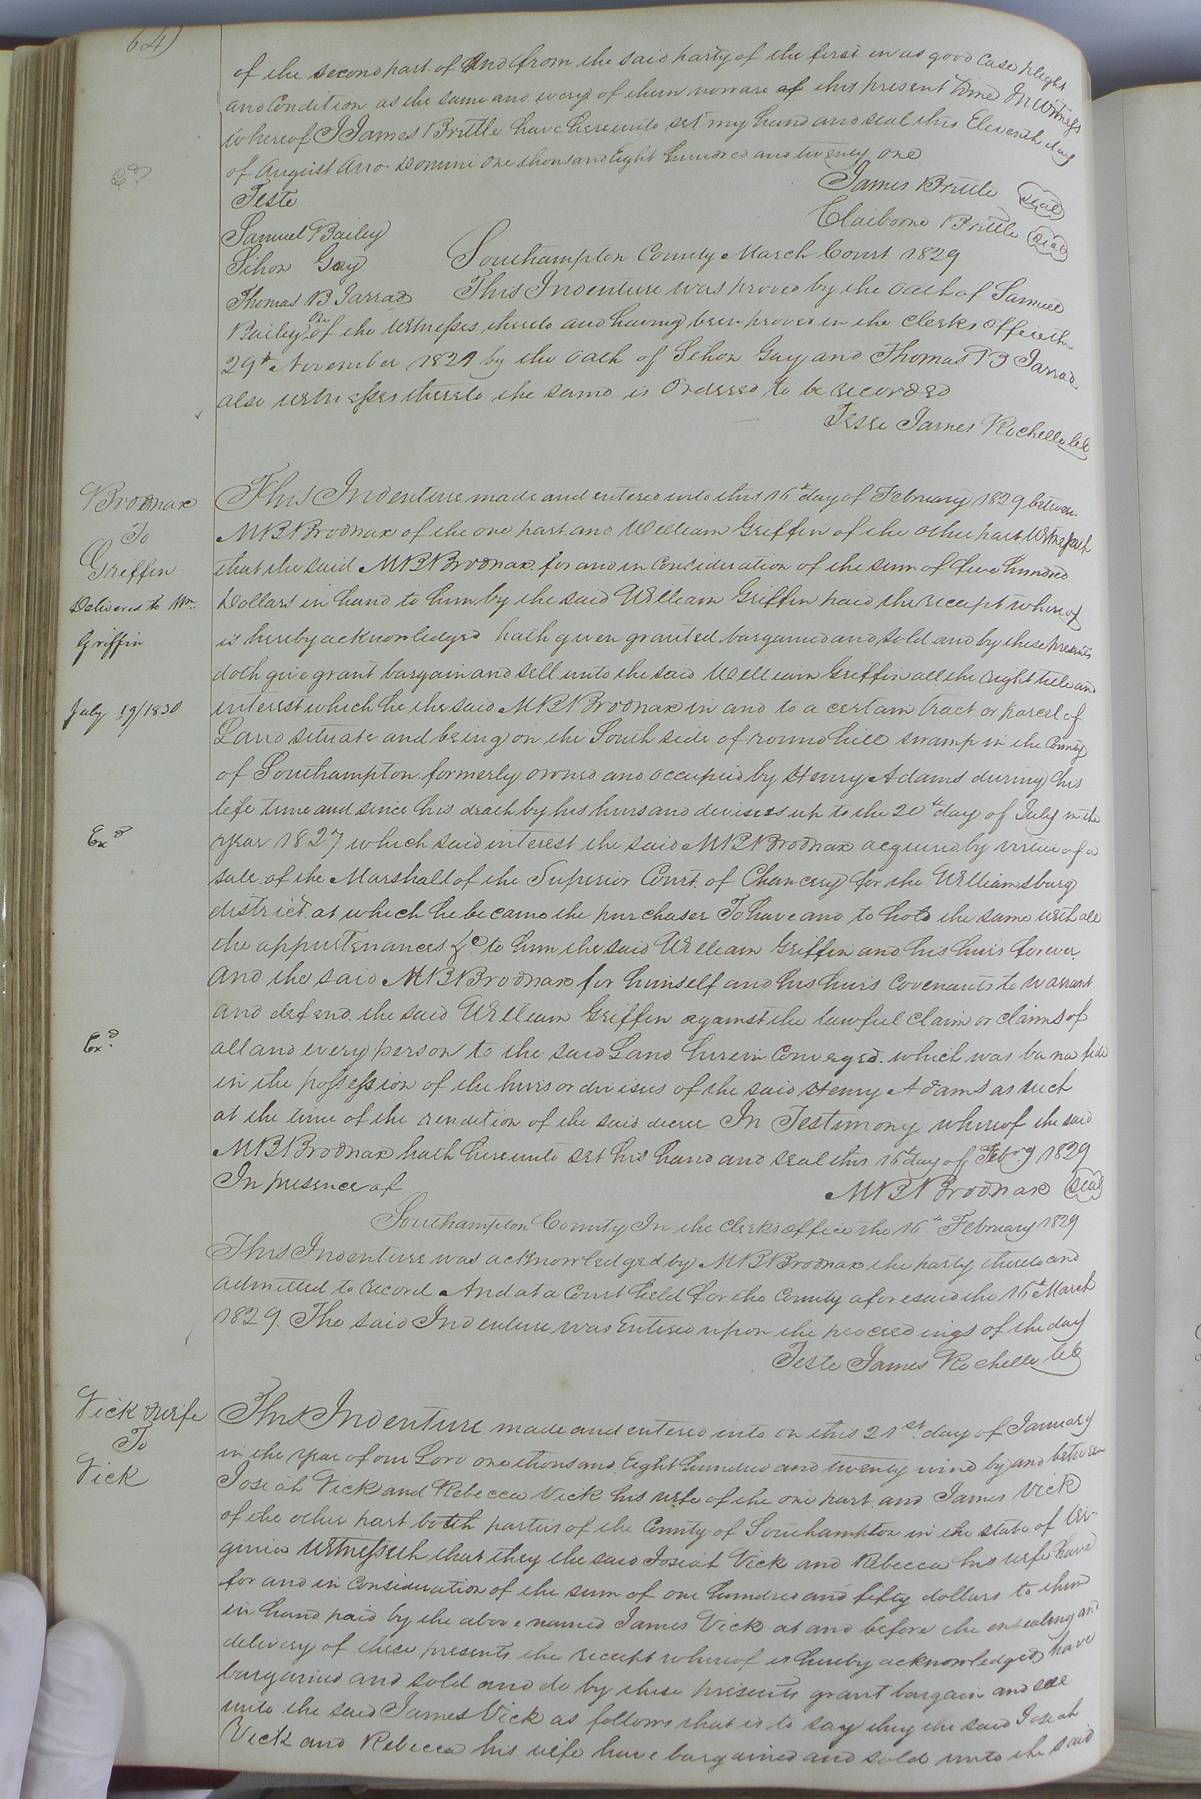 64)
of the second part of And from the said party of the first in as good Case plight
and Condition as the same and every of them now are at this present time In Witness
whereof I James Brittle have hereunto set my hand and seal this Eleventh day
of August Ano Domini One thousand Eight hundred and twenty one
Teste
James Brittle (seal)
Claiborne Brittle (seal)
Samuel Bailey
Sihon Gay
Southampton County March Court 1829
Thomas B Jarrad This Indenture was proved by the Oath of Samuel
Bailey One of the Witnesses thereto and having been proved in the Clerks Office the
29th November 1821 by the Oath of Sihon Gay and Thomas B Jarrad
also witnesses thereto the same is Ordered to be recorded
Teste James Rochelle Clk
Brodnax
To
Griffin
Delivered to Wm.
Griffin
July 19/1830
Exd
Exd
This Indenture made and entered into this 16th day of February 1829 between
MBBrodnax of the one part and William Griffin of the other part Witnesseth
that the said MBBrodnax for and in Consideration of the sum of five hundred
Dollars in hand to him by the said William Griffin paid the receipt whereof
is hereby acknowledged hath given granted bargained and sold and by these presents
doth give grant bargain and sell unto the said William Griffin all the right title and
interest which he the said MBBrodnax in and to a certain tract or parcel of
Land situate and being on the South side of round hill swamp in the County
of Southampton formerly owned and occupied by Henry Adams during his
life time and since his death by his heirs and devisees up to the 20th day of July in the
year 1827 which said interest the said MBBrodnax acquired by virtue of a
sale of the Marshall of the Superior Court of Chancery for the Williamsburg
district at which he became the purchaser To have and to hold the same with all
the appurtenances &c to him the said William Griffin and his heirs forever
And the said MBBrodnax for himself and his heirs Covenants to warrant
and defend the said William Griffin against the lawful claim or claims of
all and every person to the said Land herein Conveyed which was bona fide
in the possession of the heirs or devisees of the said Henry Adams as such
at the time of the rendition of the said decree In Testimony whereof the said
MBBrodnax hath hereunto set his hand and seal this 16th day of Febry 1829
In presence of
MBBrodnax (seal)
Southampton County In the Clerks Office the 16th February 1829
This Indenture was acknowledged by MBBrodnax the party thereto and
admitted to record And at a Court held for the County aforesaid the 16th March
1829. The said Indenture was Entered upon the proceedings of the day
Teste James Rochelle Clk
Vick & wife
To
Vick
This Indenture made and entered into on this 21st day of January
in the year of our Lord one thousand Eight hundred and twenty nine by and between
Josiah Vick and Rebecca Vick his wife of the one part and James Vick
of the other part both parties of the County of Southampton in the state of Vir-
ginia Witnesseth that they the said Josiah Vick and Rebecca his wife have
for and in Consideration of the sum of one hundred and fifty dollars to them
in hand paid by the above named James Vick at and before the ensealing and
delivery of these presents the receipt whereof is hereby acknowledged have
bargained and sold and do by these presents grant bargain and sell
unto the said James Vick as follows that is to say they the said Josiah
Vick and Rebecca his wife have bargained and sold unto the said